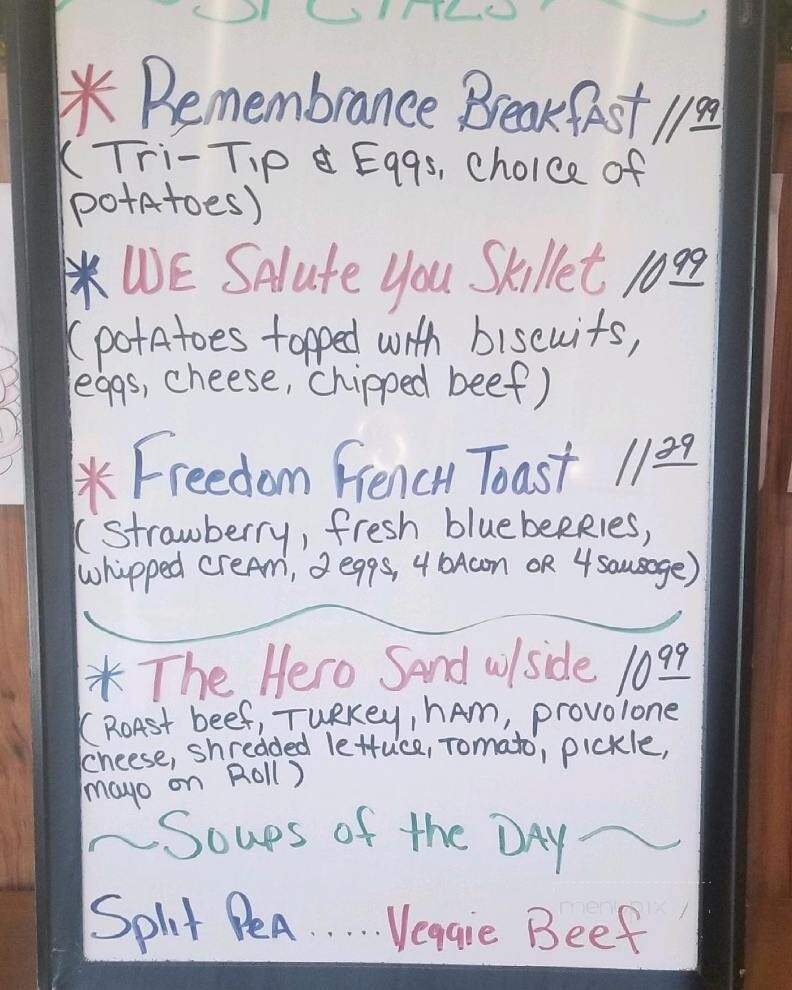 SPECIALS
* Remembrance Breakfast 11.99
(Tri-Tip & Eggs, choice of
potatoes)
* WE Salute you Skillet 10.99
(potatoes topped with biscuits,
eggs, cheese, chipped beef)
* Freedom French Toast 11.29
(Strawberry, fresh blueberries,
whipped cream, 2 eggs, 4 bacon OR 4 sausage)
* The Hero Sand w/side 10.99
(Roast beef, Turkey, ham, provolone
cheese, shredded lettuce, Tomato, pickle,
mayo on Roll)
~Soups of the DAY~
Split Pea ..... Veggie Beef
menupix